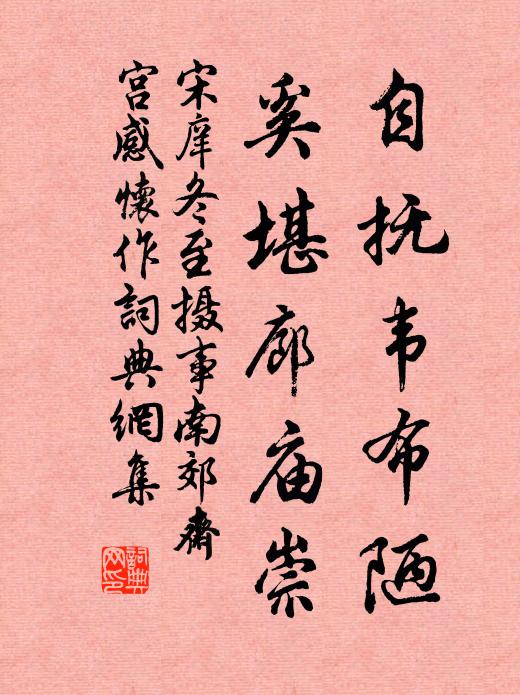 自抚韦布陋
奚堪廊庙崇
宋庠冬至摄事南郊斋
宫感怀作詞典網集
詞典网印